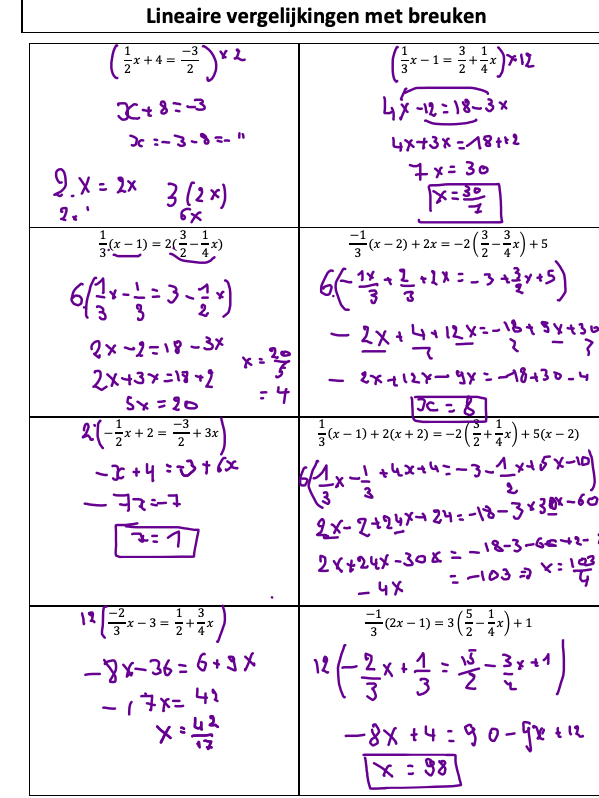 Lineaire vergelijkingen met breuken
(1/2 x + 4 = -3/2) × 2
x + 8 = -3
x = -3 - 8 = - 11
2 . x = 2x 3 (2x)
6x
(1/3 x - 1 = 3/2 + 1/4 x) × 12
4x - 12 = 18 - 3x
4x + 3x = 18 + 12
7x = 30
x = 30/7
1/3 (x - 1) = 2(3/2 - 1/4 x)
6 (1/3 x - 1/3 = 3 - 1/2 x)
2x - 2 = 18 - 3x
2x + 3x = 18 + 2
5x = 20
x = 20/5
= 4
-1/3 (x - 2) + 2x = -2(3/2 - 3/4 x) + 5
6 (- 1x/3 + 2/3 + 2x = - 3 + 3/2 x + 5)
- 2x + 4 + 12x = - 18 + 9x + 30
- 2x + 12x - 9x = - 18 + 30 - 4
x = 8
2 (- 1/2 x + 2 = -3/2 + 3x)
- x + 4 = -3 + 6x
- 7x = -7
x = 1
1/3 (x - 1) + 2(x + 2) = -2(3/2 + 1/4 x) + 5(x - 2)
6 (1/3 x - 1/3 + 2x + 4 = - 3 - 1/2 x + 5x - 10)
2x - 2 + 24x + 24 = - 18 - 3x + 30x - 60
2x + 24x - 30x = - 18 - 3 - 60 + 2 -
- 4x = - 103 ⇒ x = 103/4
12 (-2/3 x - 3 = 1/2 + 3/4 x)
- 8x - 36 = 6 + 9x
- 17x = 42
x = 42/17
-1/3 (2x - 1) = 3(5/2 - 1/4 x) + 1
12 (- 2/3 x + 1/3 = 15/2 - 3/4 x + 1)
- 8x + 4 = 90 - 9x + 12
x = 98